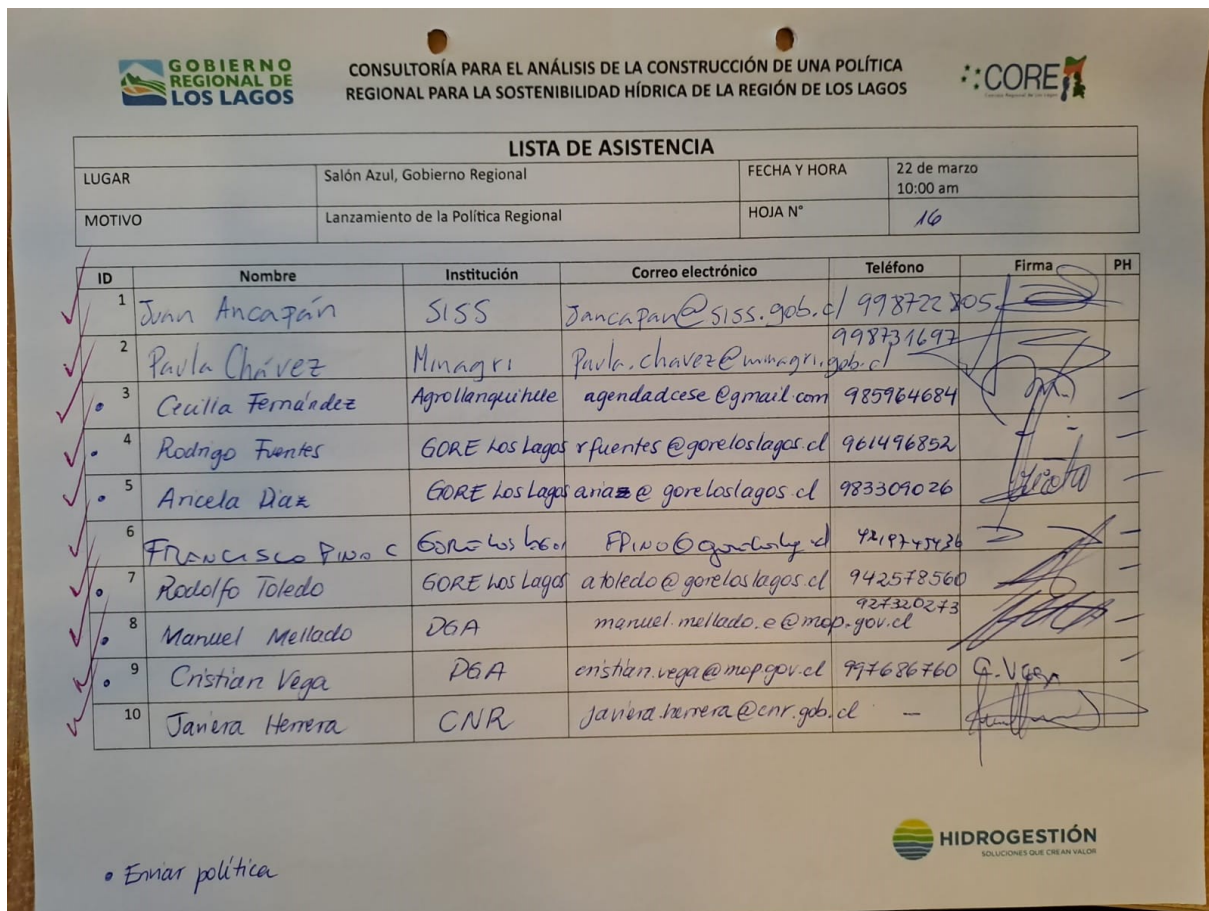 GOBIERNO
REGIONAL DE
LOS LAGOS
CONSULTORÍA PARA EL ANÁLISIS DE LA CONSTRUCCIÓN DE UNA POLÍTICA
REGIONAL PARA LA SOSTENIBILIDAD HÍDRICA DE LA REGIÓN DE LOS LAGOS
CORE
LISTA DE ASISTENCIA
LUGAR Salón Azul, Gobierno Regional FECHA Y HORA 22 de marzo
10:00 am
MOTIVO Lanzamiento de la Política Regional HOJA N° 16
ID Nombre Institución Correo electrónico Teléfono Firma PH
1 Juan Ancapán SISS Jancapan@siss.gob.cl 998722805
2 Paula Chávez Minagri Paula.chavez@minagri.gob.cl 998731697
3 Cecilia Fernández Agrollanquihue agendadcese@gmail.com 985964684
4 Rodrigo Fuentes GORE Los Lagos rfuentes@goreloslagos.cl 961496852
5 Ancela Diaz GORE Los Lagos @goreloslagos.cl 983309026
6 FRANCISCO PINO C GORE Los Lagos
7 Rodolfo Toledo GORE Los Lagos atoledo@goreloslagos.cl 942578560
8 Manuel Mellado DGA manuel.mellado.e@mop.gov.cl 927320273
9 Cristian Vega DGA cristian.vega@mop.gov.cl 997686760 C. Vega
10 Javiera Herrera CNR javiera.herrera@cnr.gob.cl —
HIDROGESTIÓN
SOLUCIONES QUE CREAN VALOR
• Enviar política